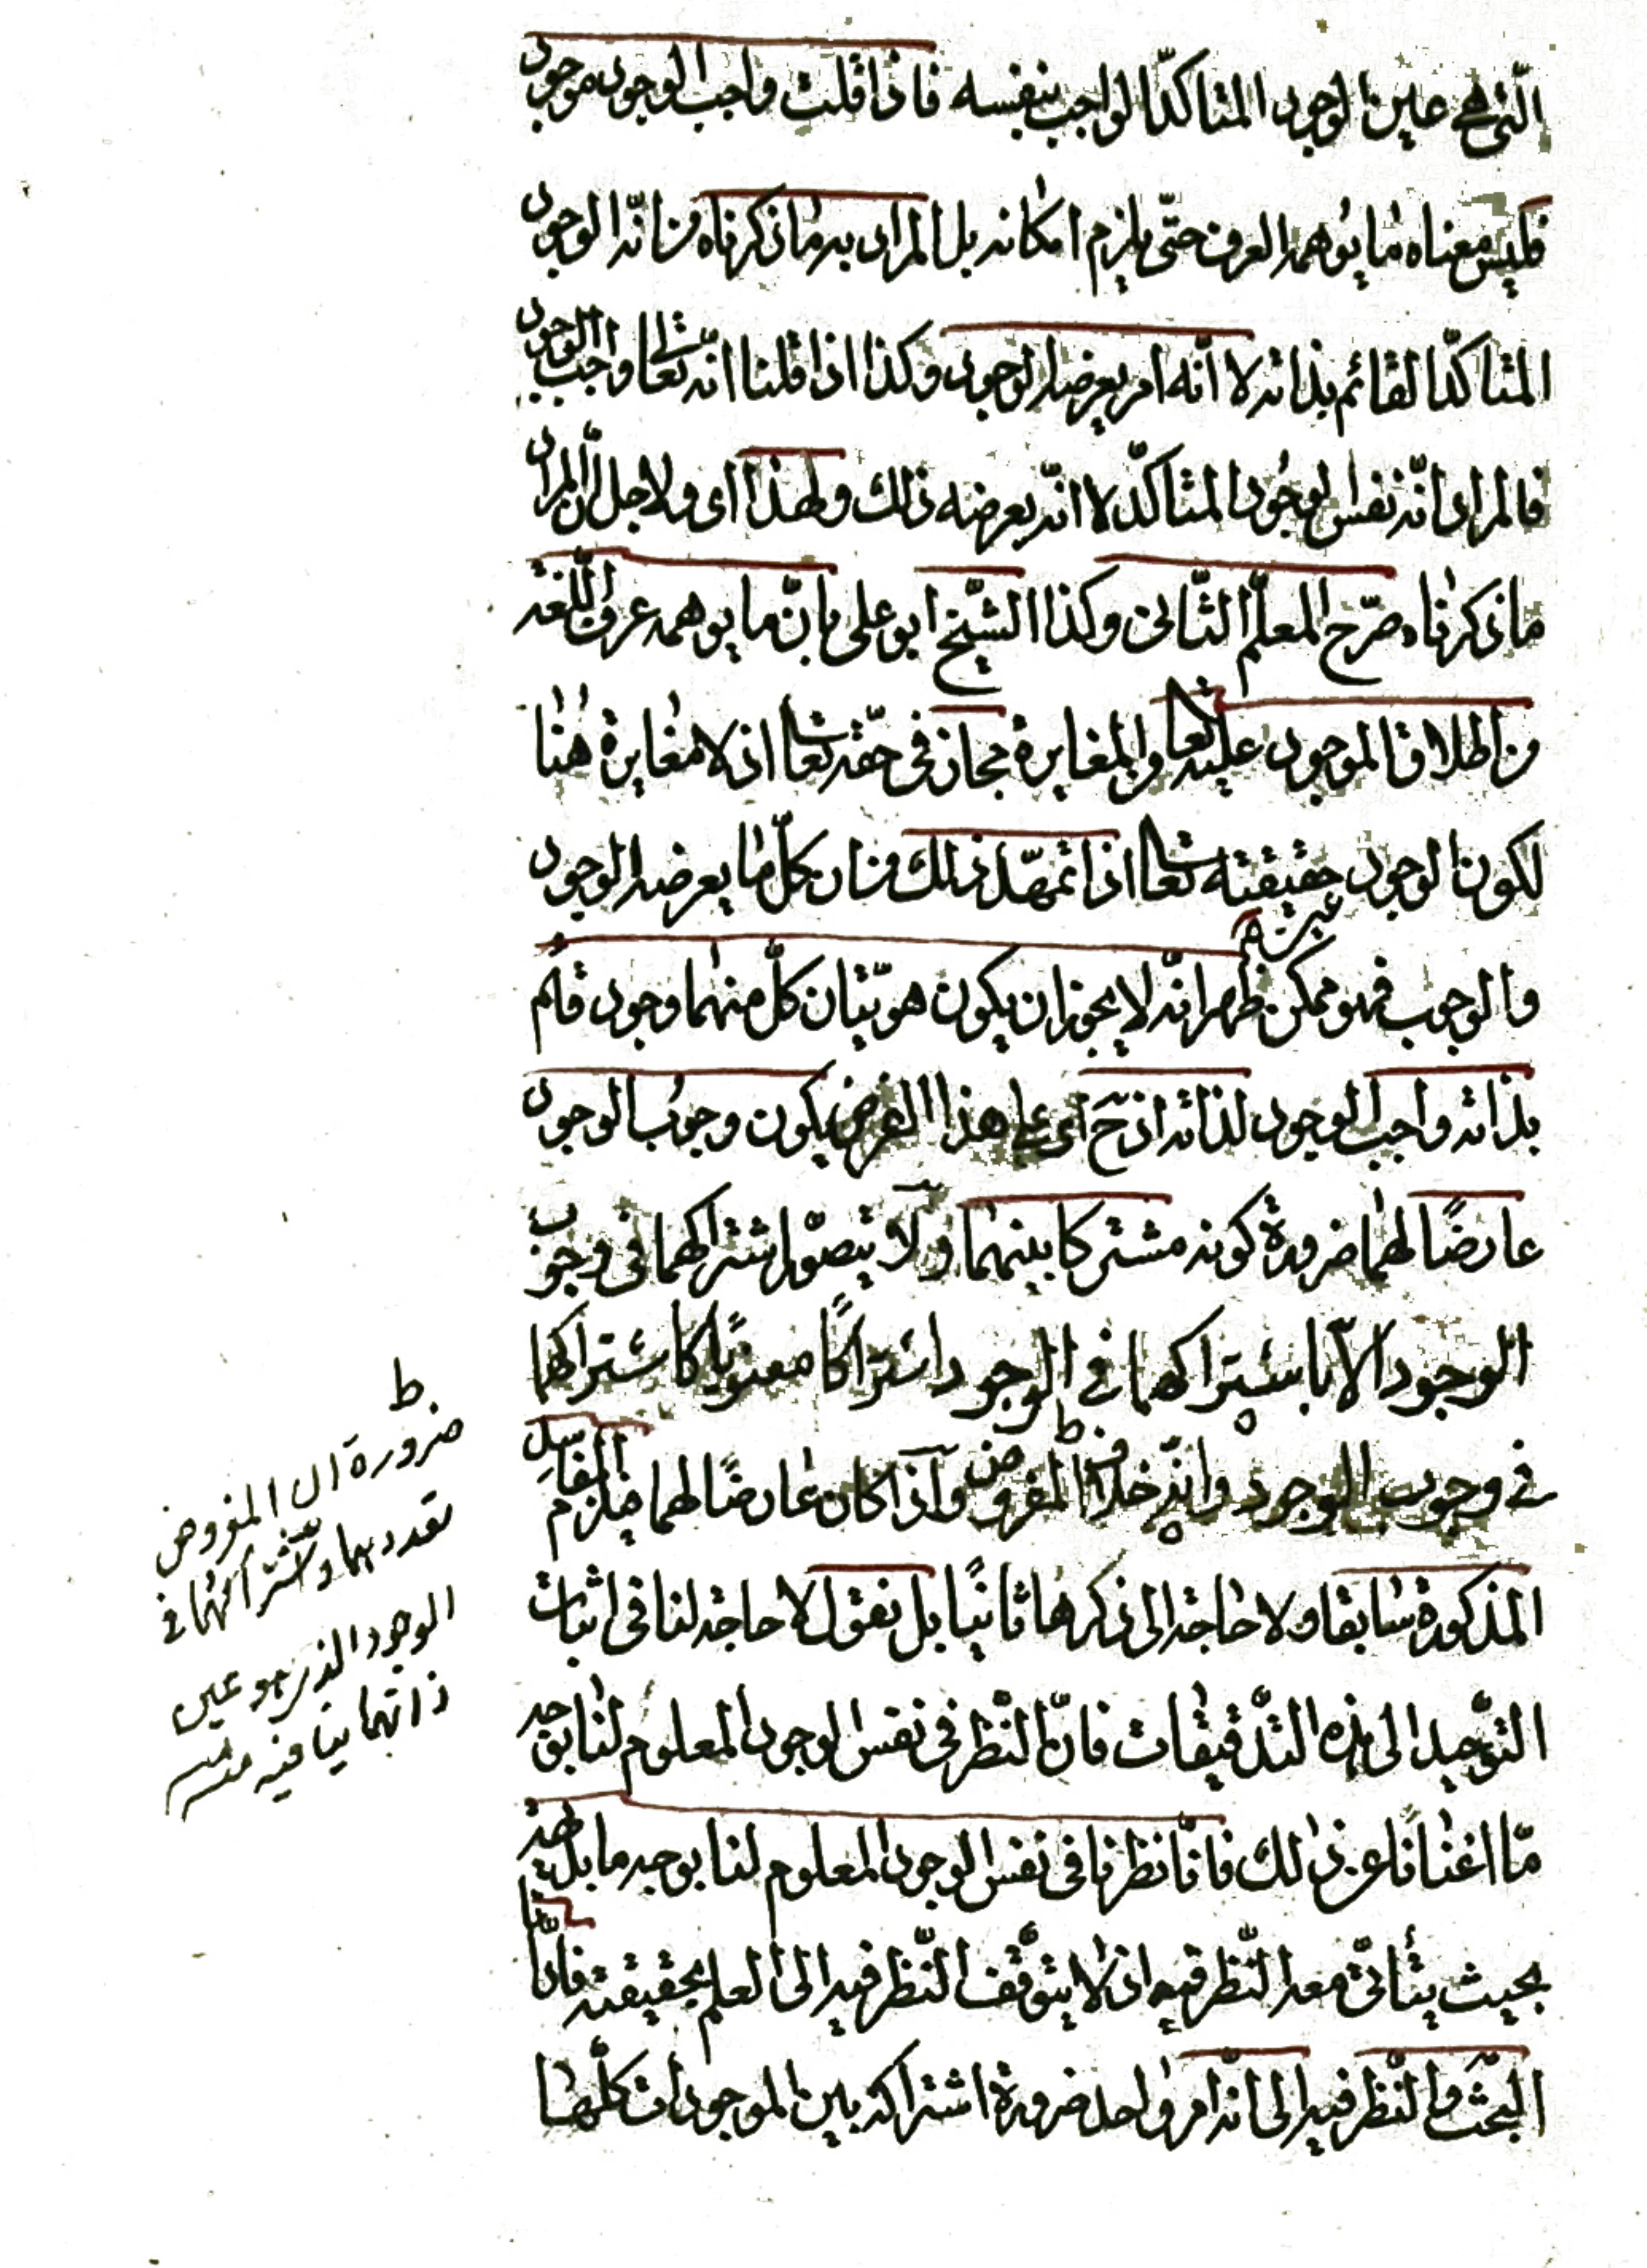 الّتى هى عين الوجود المتاكّد الواجب بنفسه فاذا قلت واجب الوجود موجود
فليس معناه ما يوهمه العرف حتّى يلزم امكانه بل المراد به ما ذكرناه من انّه الوجود
المتاكّد القائم بذاته لا انّه امر يعرضه الوجود وكذا اذا قلنا انّه تعالى واجب الوجود
فالمراد انّه نفس الوجود المتاكّد لا انّه يعرضه ذلك ولهذا اى ولاجل انّ المراد
ما ذكرناه صرّح المعلّم الثّانى وكذا الشّيخ ابو على بانّ ما يوهمه عرف اللّغة
من اطلاق الموجود عليه تعالى والمغايرة مجاز فى حقّه تعالى اذ لا مغايرة هنا
لكون الوجود حقيقته تعالى اذا تمهّد ذلك من ان كلّ ما يعرضه الوجود
والوجوب فهو ممكن ظهر انّه لا يجوز ان يكون هويّتان كلّ منهما وجود قائم
بذاته واجب الوجود لذاته اذ ح اى على هذا الفرض يكون وجوب الوجود
عارضًا لهما ضرورة كونه مشتركا بينهما ولا يتصوّر اشتراكهما فى وجوب
الوجود الاّ باشتراكهما فى الوجود اشتراكًا معنويًّا كاشتراكهما
فى وجوب الوجود وانّه خلاف المفروض واذا كان عارضًا لهما فيلزم المفاسد
المذكورة سابقا ولا حاجة الى ذكرها ثانيًا بل نقول لا حاجة لنا فى اثبات
التّوحيد الى هذه التّدقيقات فانّ النّظر فى نفس الوجود المعلوم لنا بوجه
ممّا اغنانا عن ذلك فانّا نظرنا فى نفس الوجود المعلوم لنا بوجه ما بل بديهة
بحيث يتأتّى معه النّظر فيه اذ لا يتوقّف النّظر فيه الى العلم بحقيقته فادّانا
البحث والنّظر فيه الى انّه امر واحد ضرورة اشتراكه بين الموجودات كلّها
ط
ضرورة ان المفروض
تعددهما واشتراكهما فى
الوجود الذى هو عين
ذاتهما ينافيه